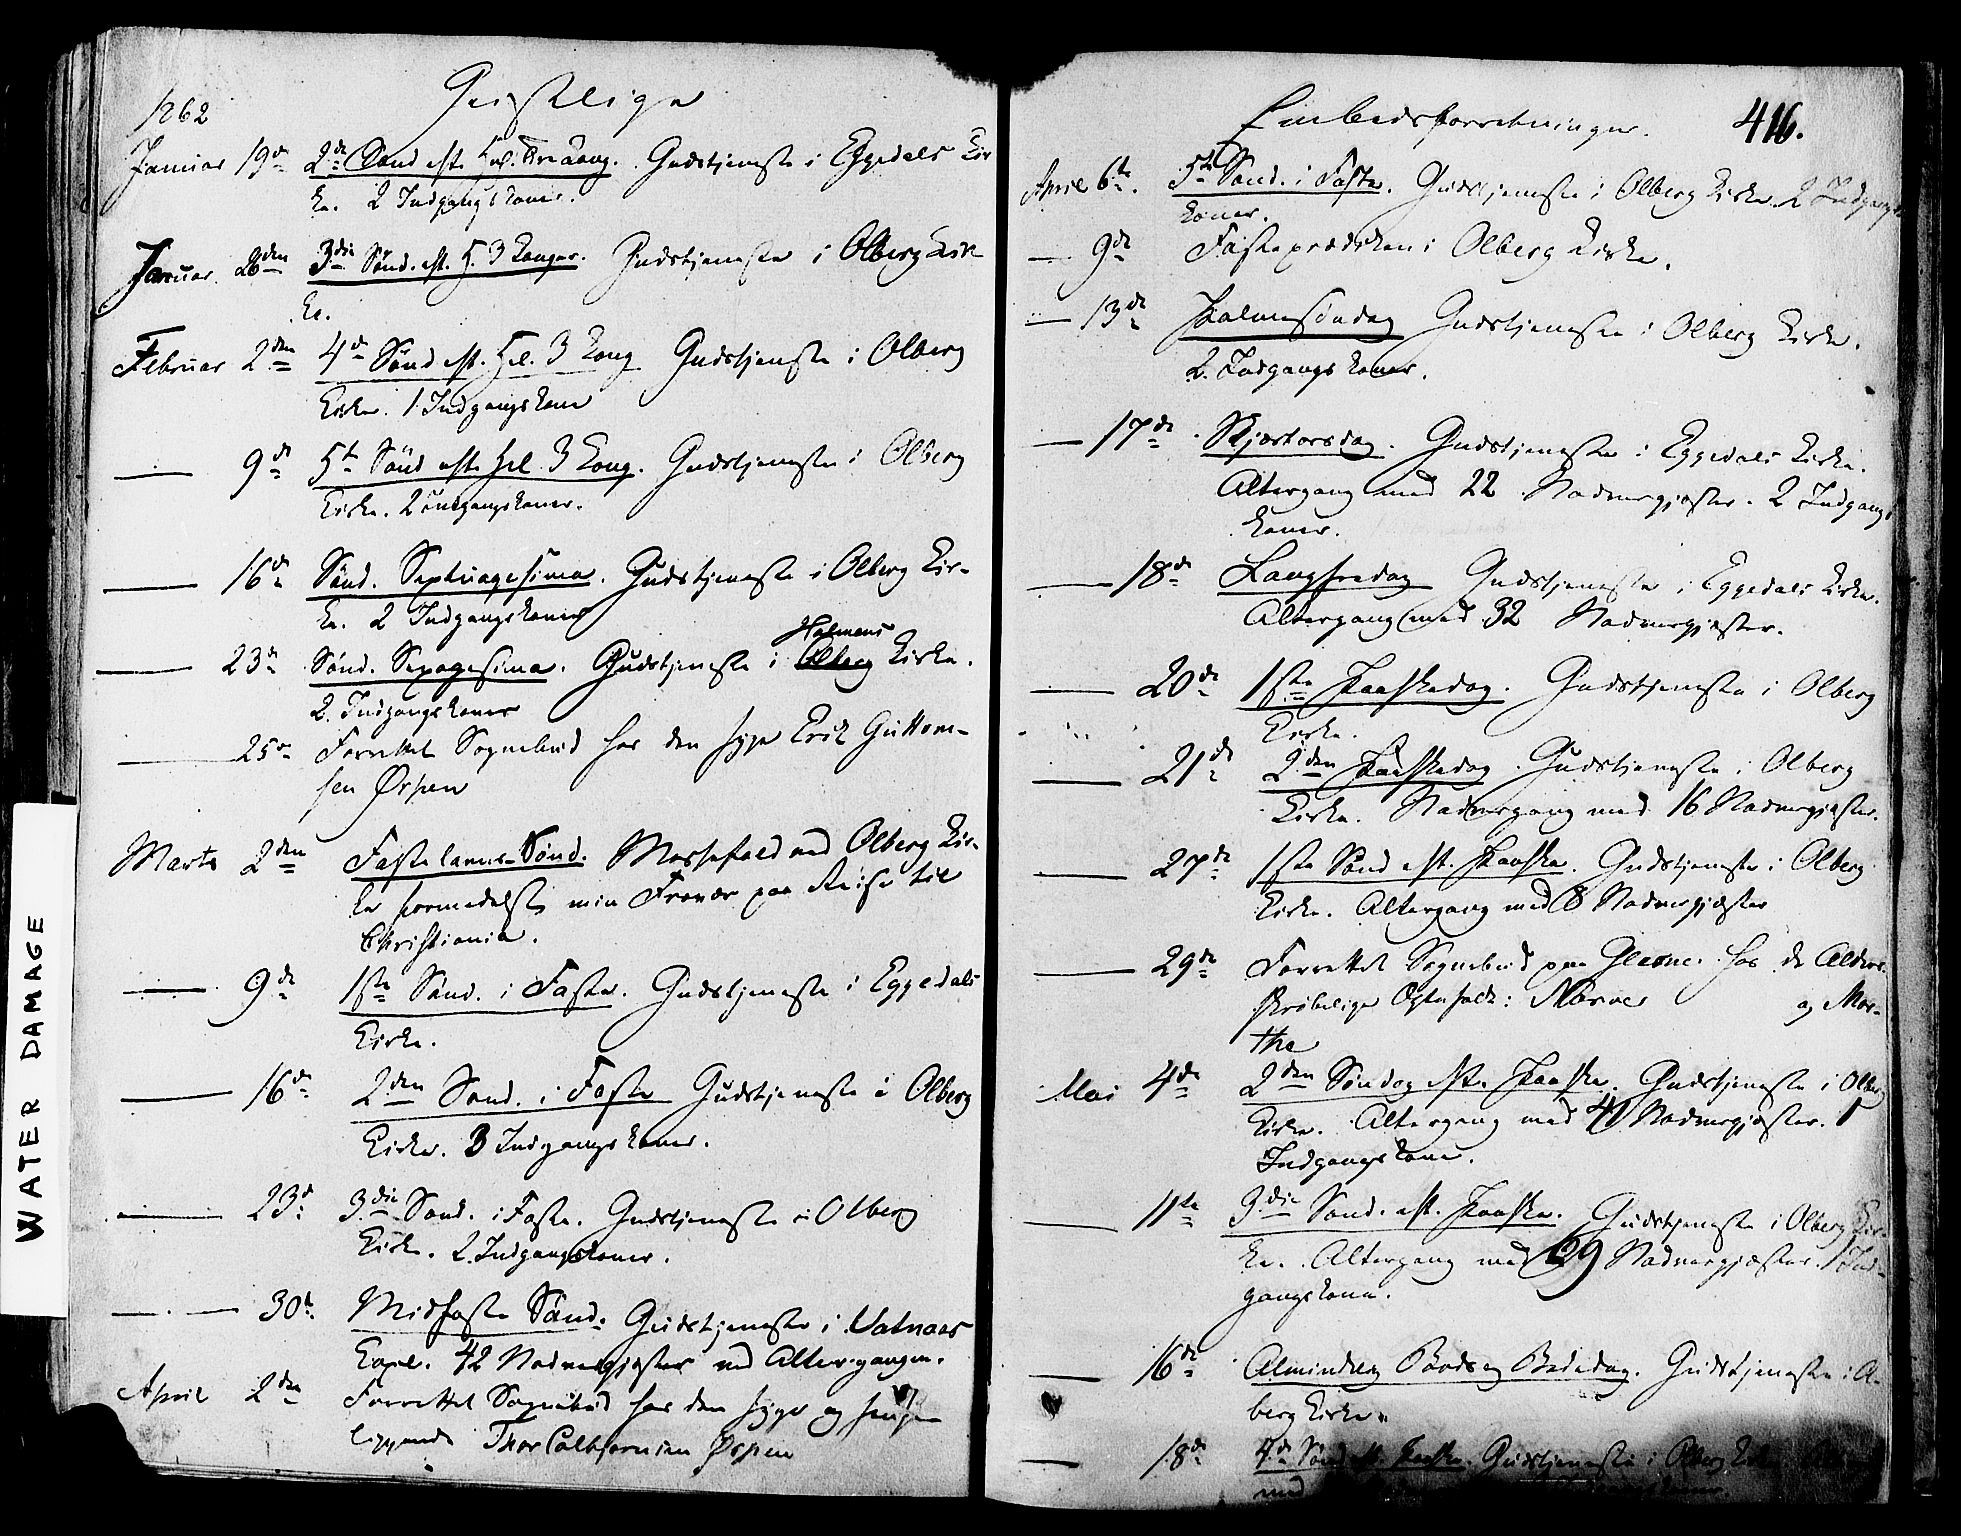 1862
Geistlige
Januar 19de 2de Sønd. eft. Hel. Tre Kong. Gudstjeneste i Eggedals Kir
ke. 2 Indgangskoner.
Januar. 26den 3die Sønd. eft. H. 3 Konger. Gudstjeneste i Olberg Kir
ke.
Februar 2den 4de Sønd eft. Hel. 3 Kong Gudstjeneste i Olberg
Kirke. 1 Indgangskone
9de 5te Sønd efter Hel 3 Kong. Gudstjeneste i Olberg
Kirke. 2 Indgangskoner.
16de Sønd. Septuagesima. Gudstjeneste i Olberg Kir-
ke. 2 Indgangskoner
Holmens
23de Sønd. Sexagesima. Gudstjeneste i Olberg Kirke.
2. Indgangskoner
25de Forrettet Sognebud hos den syge Erik Guttorm-
sen Ørpen
Marts 2den Fastelavns-Sønd. Messefald ved Olberg Kir-
ke formedelst min Fravær paa Reise til
Christiania.
9de 1ste Sønd. i Faste. Gudstjeneste i Eggedals
Kirke.
16de 2den Sønd. i Faste Gudstjeneste i Olberg
Kirke. 3 Indgangskoner.
23de 3die Sønd. i Faste. Gudstjeneste i Olberg
Kirke. 2 Indgangskoner.
30te Midfaste Sønd. Gudstjeneste i Vatnaas
Capel. 42 Nadvergjester ved Altergangen.
April 2den Forrettet Sognebud hos den syge og senge
liggende Thor Colbjørnsen Ørpen
Embedsforretninger. 416.
April 6te. 5te Sønd. i Faste. Gudstjeneste i Olberg Kirke. 2 Indgangs
koner.
9de Fasteprædiken i Olberg Kirke.
13de Palmesøndag Gudstjeneste i Olberg Kirke.
2. Indgangskoner.
17de Skjærtorsdag. Gudstjeneste i Eggedals Kirke.
Altergang med 22 Nadvergjæster. 2 Indgangs
koner.
18de Langfredag Gudstjeneste i Eggedals Kirke.
Altergang med 32 Nadvergjæster.
20de 1ste Paaskedag. Gudstjeneste i Olberg
Kirke.
21de 2den Paaskedag. Gudstjeneste i Olberg
Kirke. Nadvergang med 16 Nadvergjæster.
27de 1ste Sønd eft. Paaske. Gudstjeneste i Olberg
Kirke. Altergang med 8 Nadvergjæster
29de Forrettet Sognebud paa Glesne. hos de Alders-
skrøbelige Ægtefolk: Narve og Mar-
the
Mai 4de 2den Søndag efter Paaske. Gudstjeneste i Olberg
Kirke. Altergang med 41 Nadvergjæster. 1
Indgangskone.
11te 3die Sønd. eft. Paaske. Gudstjeneste i Olberg Kir-
ke. Altergang med 29 Nadvergjæster. 1 Ind-
gangskone.
16de Almindelig Bods og Bededag. Gudstjeneste i Ol-
berg Kirke.
18de 4de Sønd eft. Paaske. Gudstjeneste i Olberg Kirke
med
WATER DAMAGE